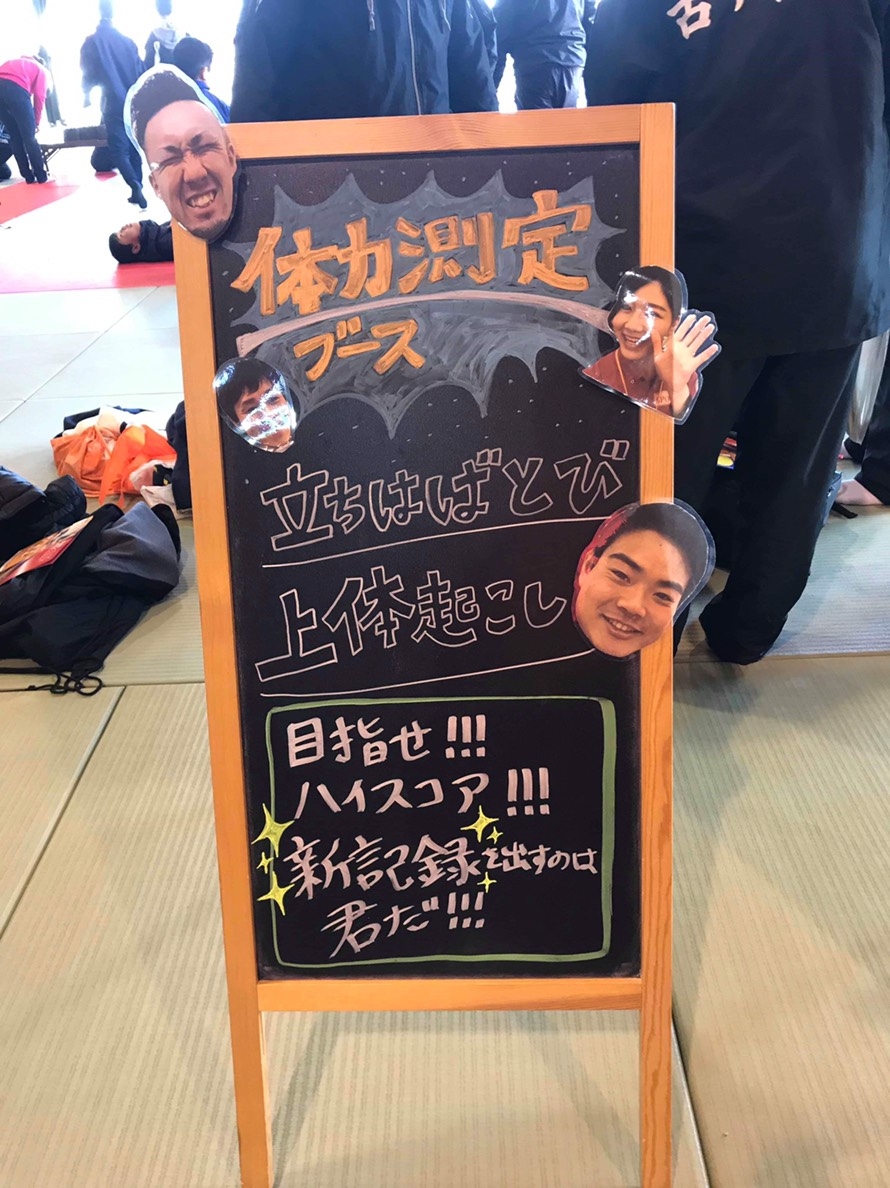 体力測定
ブース
立ちはばとび
上体起こし
目指せ!!!
ハイスコア!!!
新記録を出すのは
君だ!!!